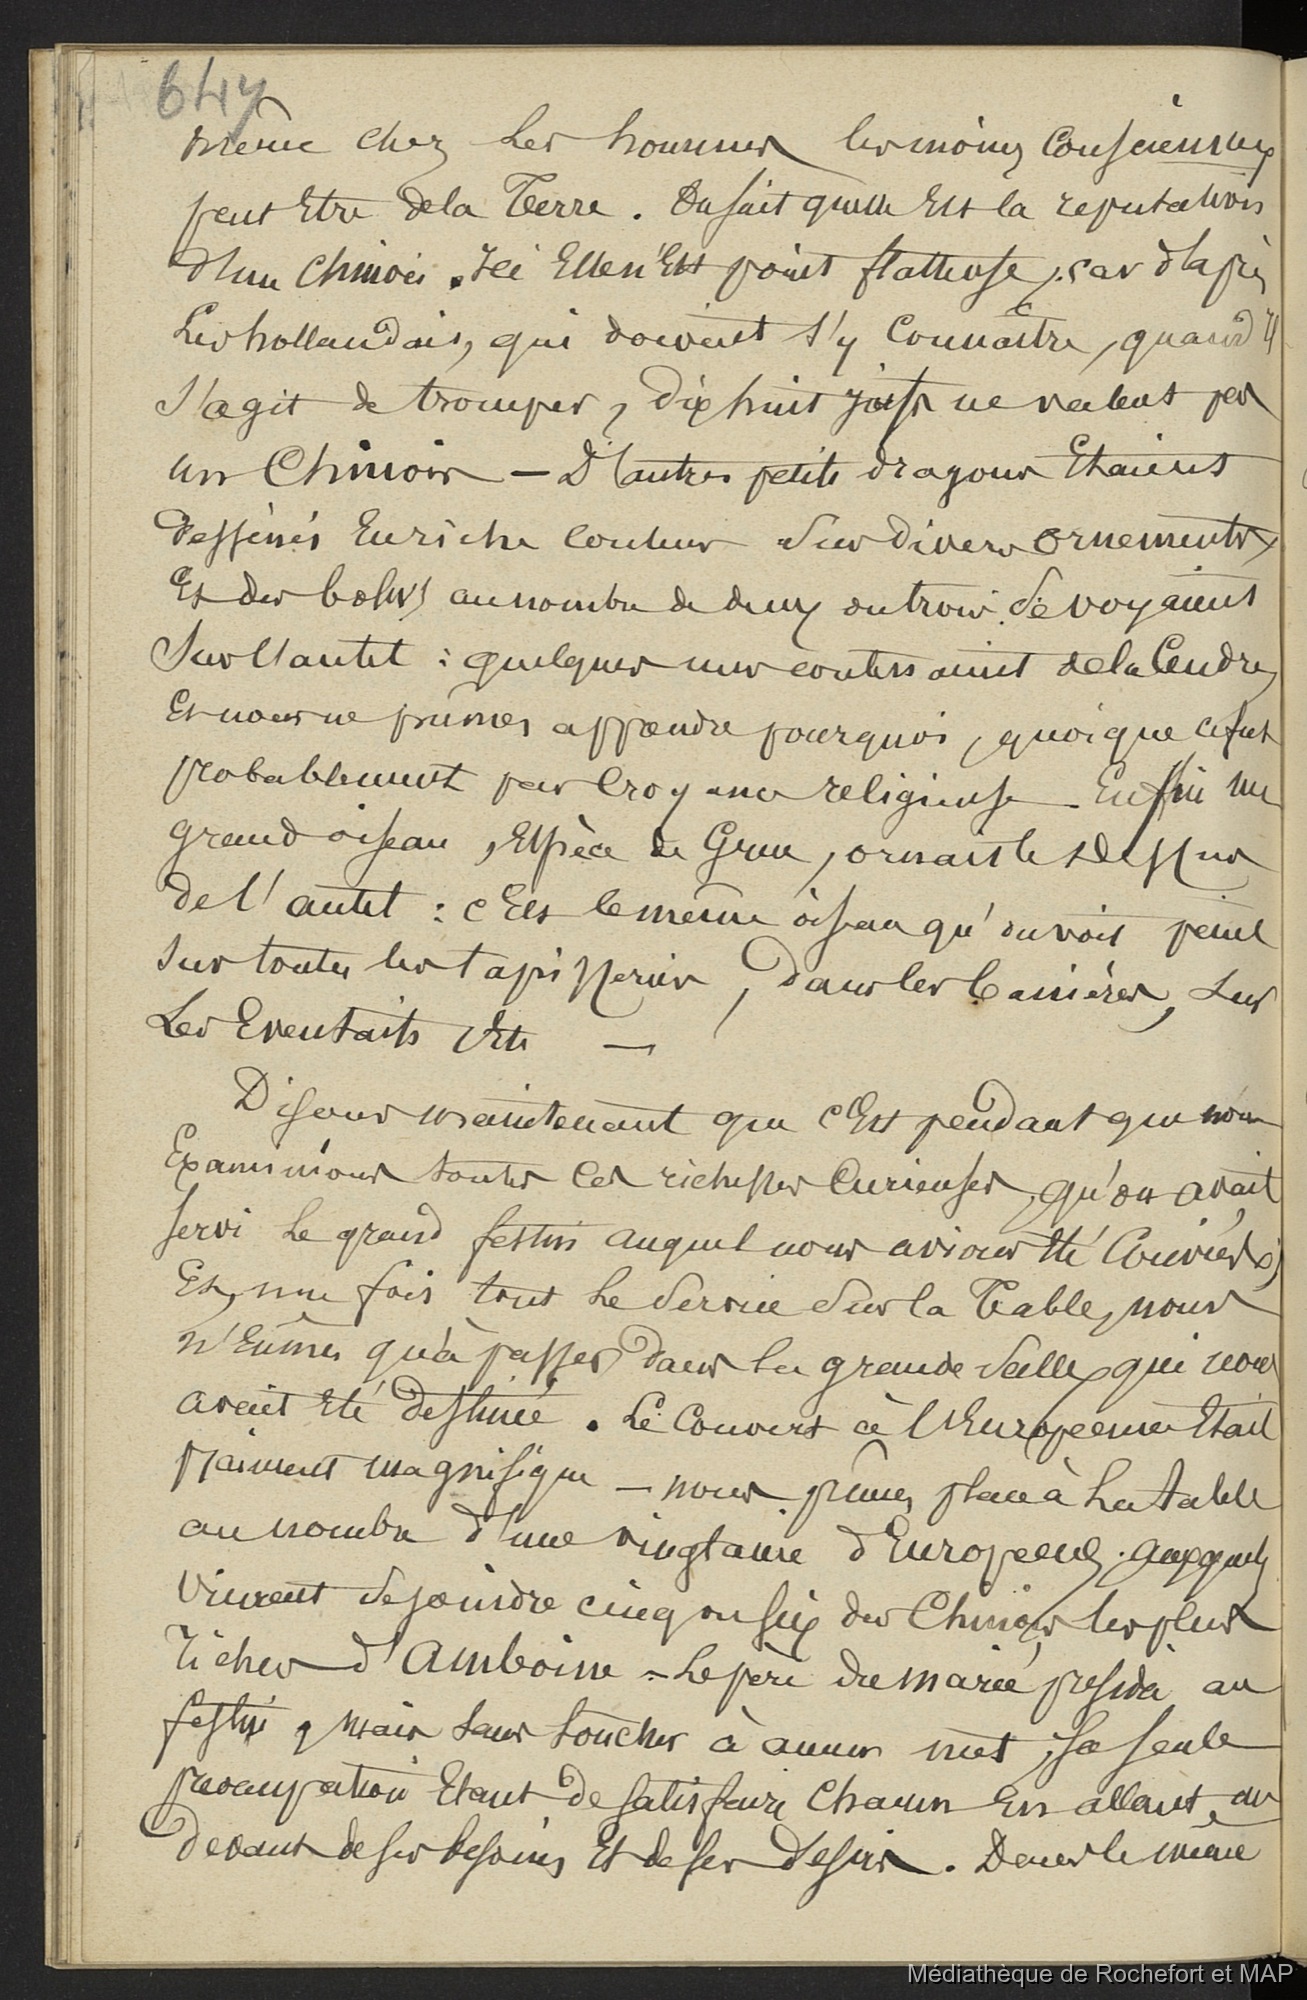 647
même chez les hommes les moins consciencieux
peut Etre de la Terre. On sait quelle Est la reputation
d'un Chinois. Ici Elle n'Est point flatteuse, car d'après
Les hollandais, qui doivent s'y Connaître, quand il
s'agit de tromper, dix huit juifs ne valent pas
un Chinois — D'autres petits dragons Etaient
dessinés En riche couleur sur divers ornements,
Et des bols au nombre de deux ou trois se voyaient
sur l'autel : quelques uns contenaient de la Cendre,
Et nous ne pûmes apprendre pourquoi, quoique ce fut
probablement par Croyance religieuse — Enfin un
grand oiseau, Espèce de Grue, ornait le dessus
de l'autel : c'Est le même oiseau qu'on voit peint
sur toutes les tapisseries, dans les bannières, sur
Les Eventails Etc —
Disons maintenant que c'Est pendant que nous
Examinions toutes ces richesses Curieuses, qu'on avait
servi le grand festin auquel nous avions été Conviés;
Et, une fois tout le Service Sur la Table, nous
n'Eûmes qu'à passer dans la grande Salle qui nous
avait Eté destinée. Le Couvert à l'Européenne Etait
vraiment magnifique — nous prîmes place à la table
au nombre d'une vingtaine d'Européens, auxquels
vinrent se joindre cinq ou six des Chinois les plus
riches d'Amboine — Le père du marié présida au
festin, mais sans toucher à aucun mèt, sa seule
préoccupation Etant de satisfaire Chacun En allant au
devant de ses besoins Et de ses desirs. Dans le même
Médiathèque de Rochefort et MAP